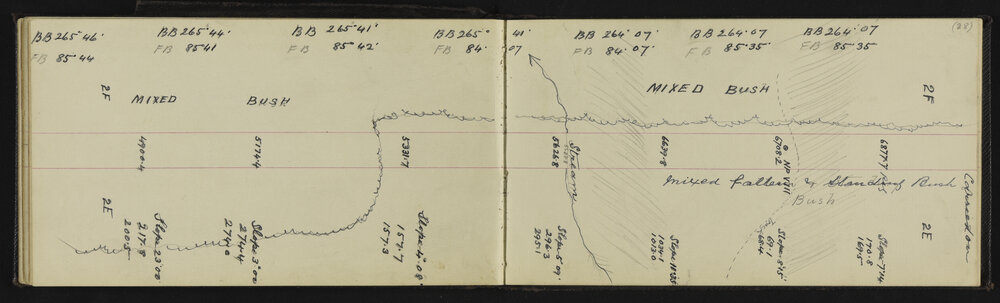 BB 265° 46'
FB 85° 44
BB 265° 44'
FB 85 41
BB 265° 41'
FB 85° 42'
BB 265° 41'
FB 84. 07
BB 264° 07'
FB 84. 07'
BB 264° 07
FB 85° 35'
BB 264. 07
FB 85° 35
(28)
2F
MIXED BUSH
MIXED BUSH
2F
4970.4
5174.4
5331.7
5626.8
Stream
6639.8
NP VIII
6708.2
6877.7
mixed fallen & Standing Bush
Bush
2E
Slope 23°00
217.8
200.5
Slope 3°00
274.4
274.0
Slope 4°08'
157.7
157.3
Slope 5°09'
296.3
295.1
1034.1
1013.0
Slope 8°15'
69.1
68.4
Slope 7°14
170.8
169.5
2E